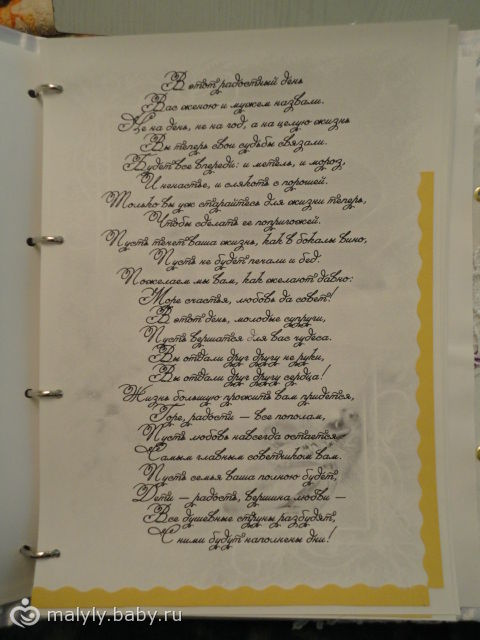 В этот радостный день
Вас женою и мужем назвали.
Не на день, не на год, а на целую жизнь
Вы теперь свои судьбы связали.
Будет все впереди: и метель, и мороз,
И ненастье, и слякоть с порошей.
Только вы уж старайтесь для жизни теперь,
Чтобы сделать ее попригожей.
Пусть течет ваша жизнь, как в бокалы вино,
Пусть не будет печали и бед.
Пожелаем мы вам, как желают давно:
Море счастья, любовь да совет!
В этот день, молодые супруги,
Пусть вершатся для вас чудеса.
Вы отдали друг другу не руки,
Вы отдали друг другу сердца!
Жизнь большую прожить вам придется,
Горе, радости — все пополам,
Пусть любовь навсегда остается
Самым главным советником вам.
Пусть семья ваша полною будет,
Дети — радость, вершина любви —
Все душевные струны разбудят,
С ними будут наполнены дни!
malyly.baby.ru